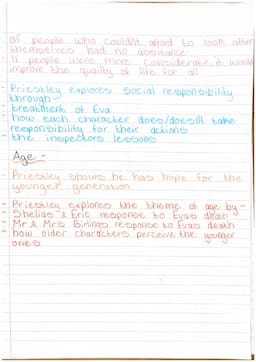 of people who couldnt afford to look after
themselves had no assitance
- If people were more considerate, it would
improve the quality of life for all
- Priestley explores social responsibility
through -
- treatment of Eva
- how each character does/doesnt take
responsibility for their actions
- the inspectors lessons
Age -
- Priestley shows he has hope for the
younger generation
- Priestley explores the theme of age by -
- Shelias & Eric response to Evas death
- Mr & Mrs Birlings response to Evas death
- how older characters perceive the younger
ones